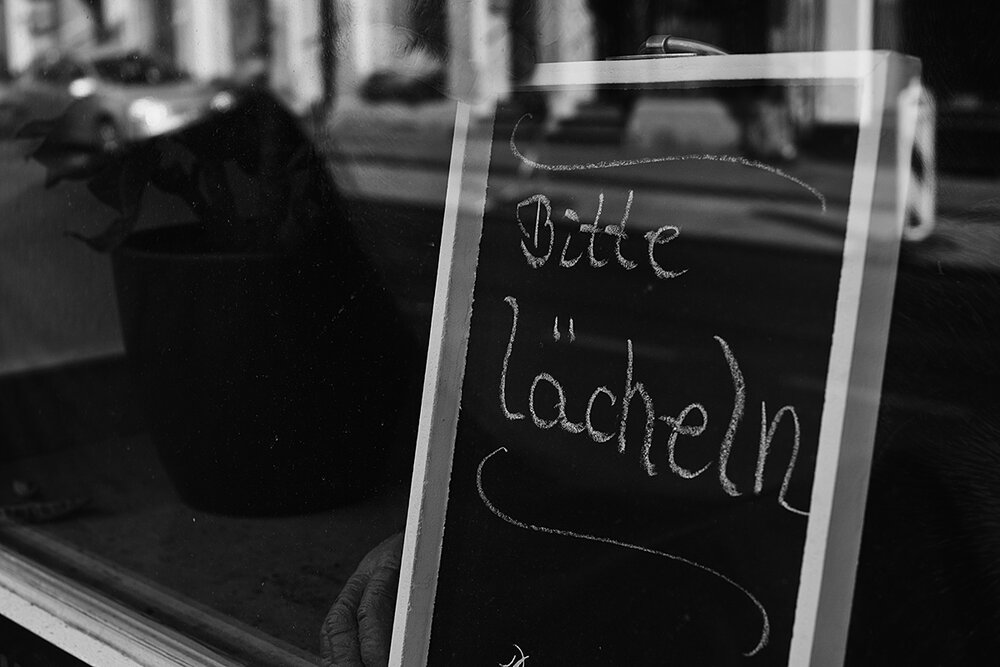 Bitte
lächeln